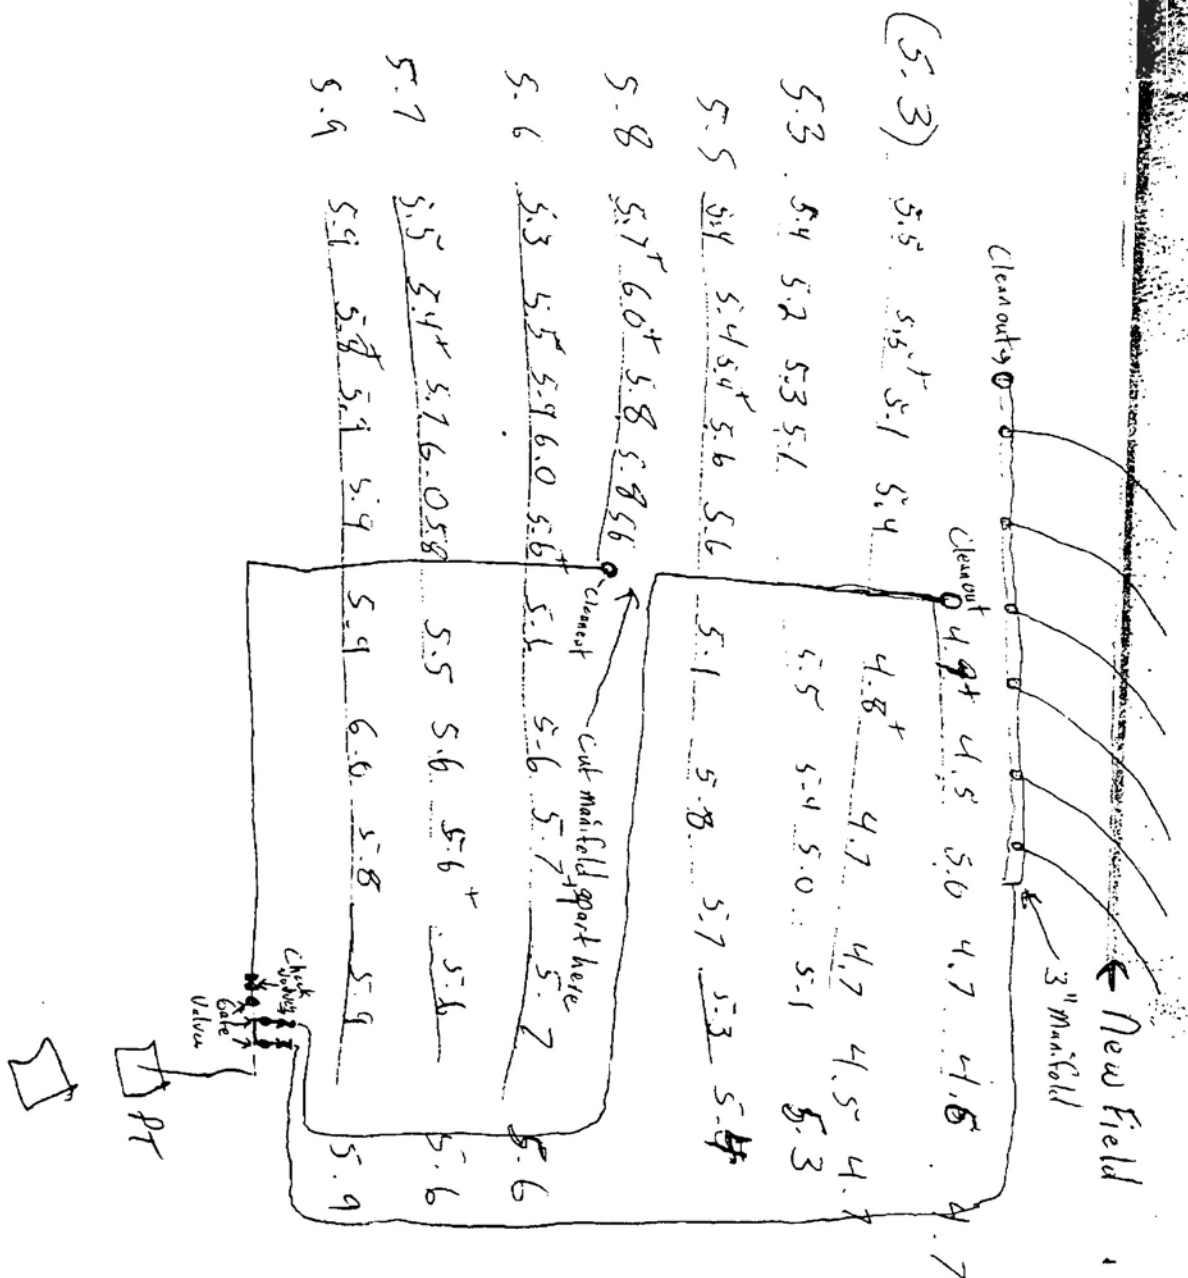 ← New Field
3" Manifold
Cleanout
Cleanout
4.9+ 4.5 5.0 4.7 4.6 4.7
(5.3) 5.5 5.5+ 5.1 5.4 4.8+ 4.7 4.7 4.5 4.7
5.3 5.4 5.2 5.3 5.1 5.5 5.4 5.0 5.1 5.3
5.5 5.4 5.4 5.4+ 5.6 5.6 5.1 5.8 5.7 5.3 5.4
5.8 5.7+ 6.0+ 5.8 5.8 5.6
Cleanout
Cut manifold apart here
5.6 5.3 5.5 5.9 6.0 5.6+ 5.6 5.7+ 5.7 5.6
5.7 5.5 5.4+ 5.7 6.0 5.8 5.5 5.6 5.6+ 5.6 5.6
5.9 5.9 5.8+ 5.9 5.9 5.9 6.0 5.8 5.9 5.9
Check
Valves
Gate
Valves
PT